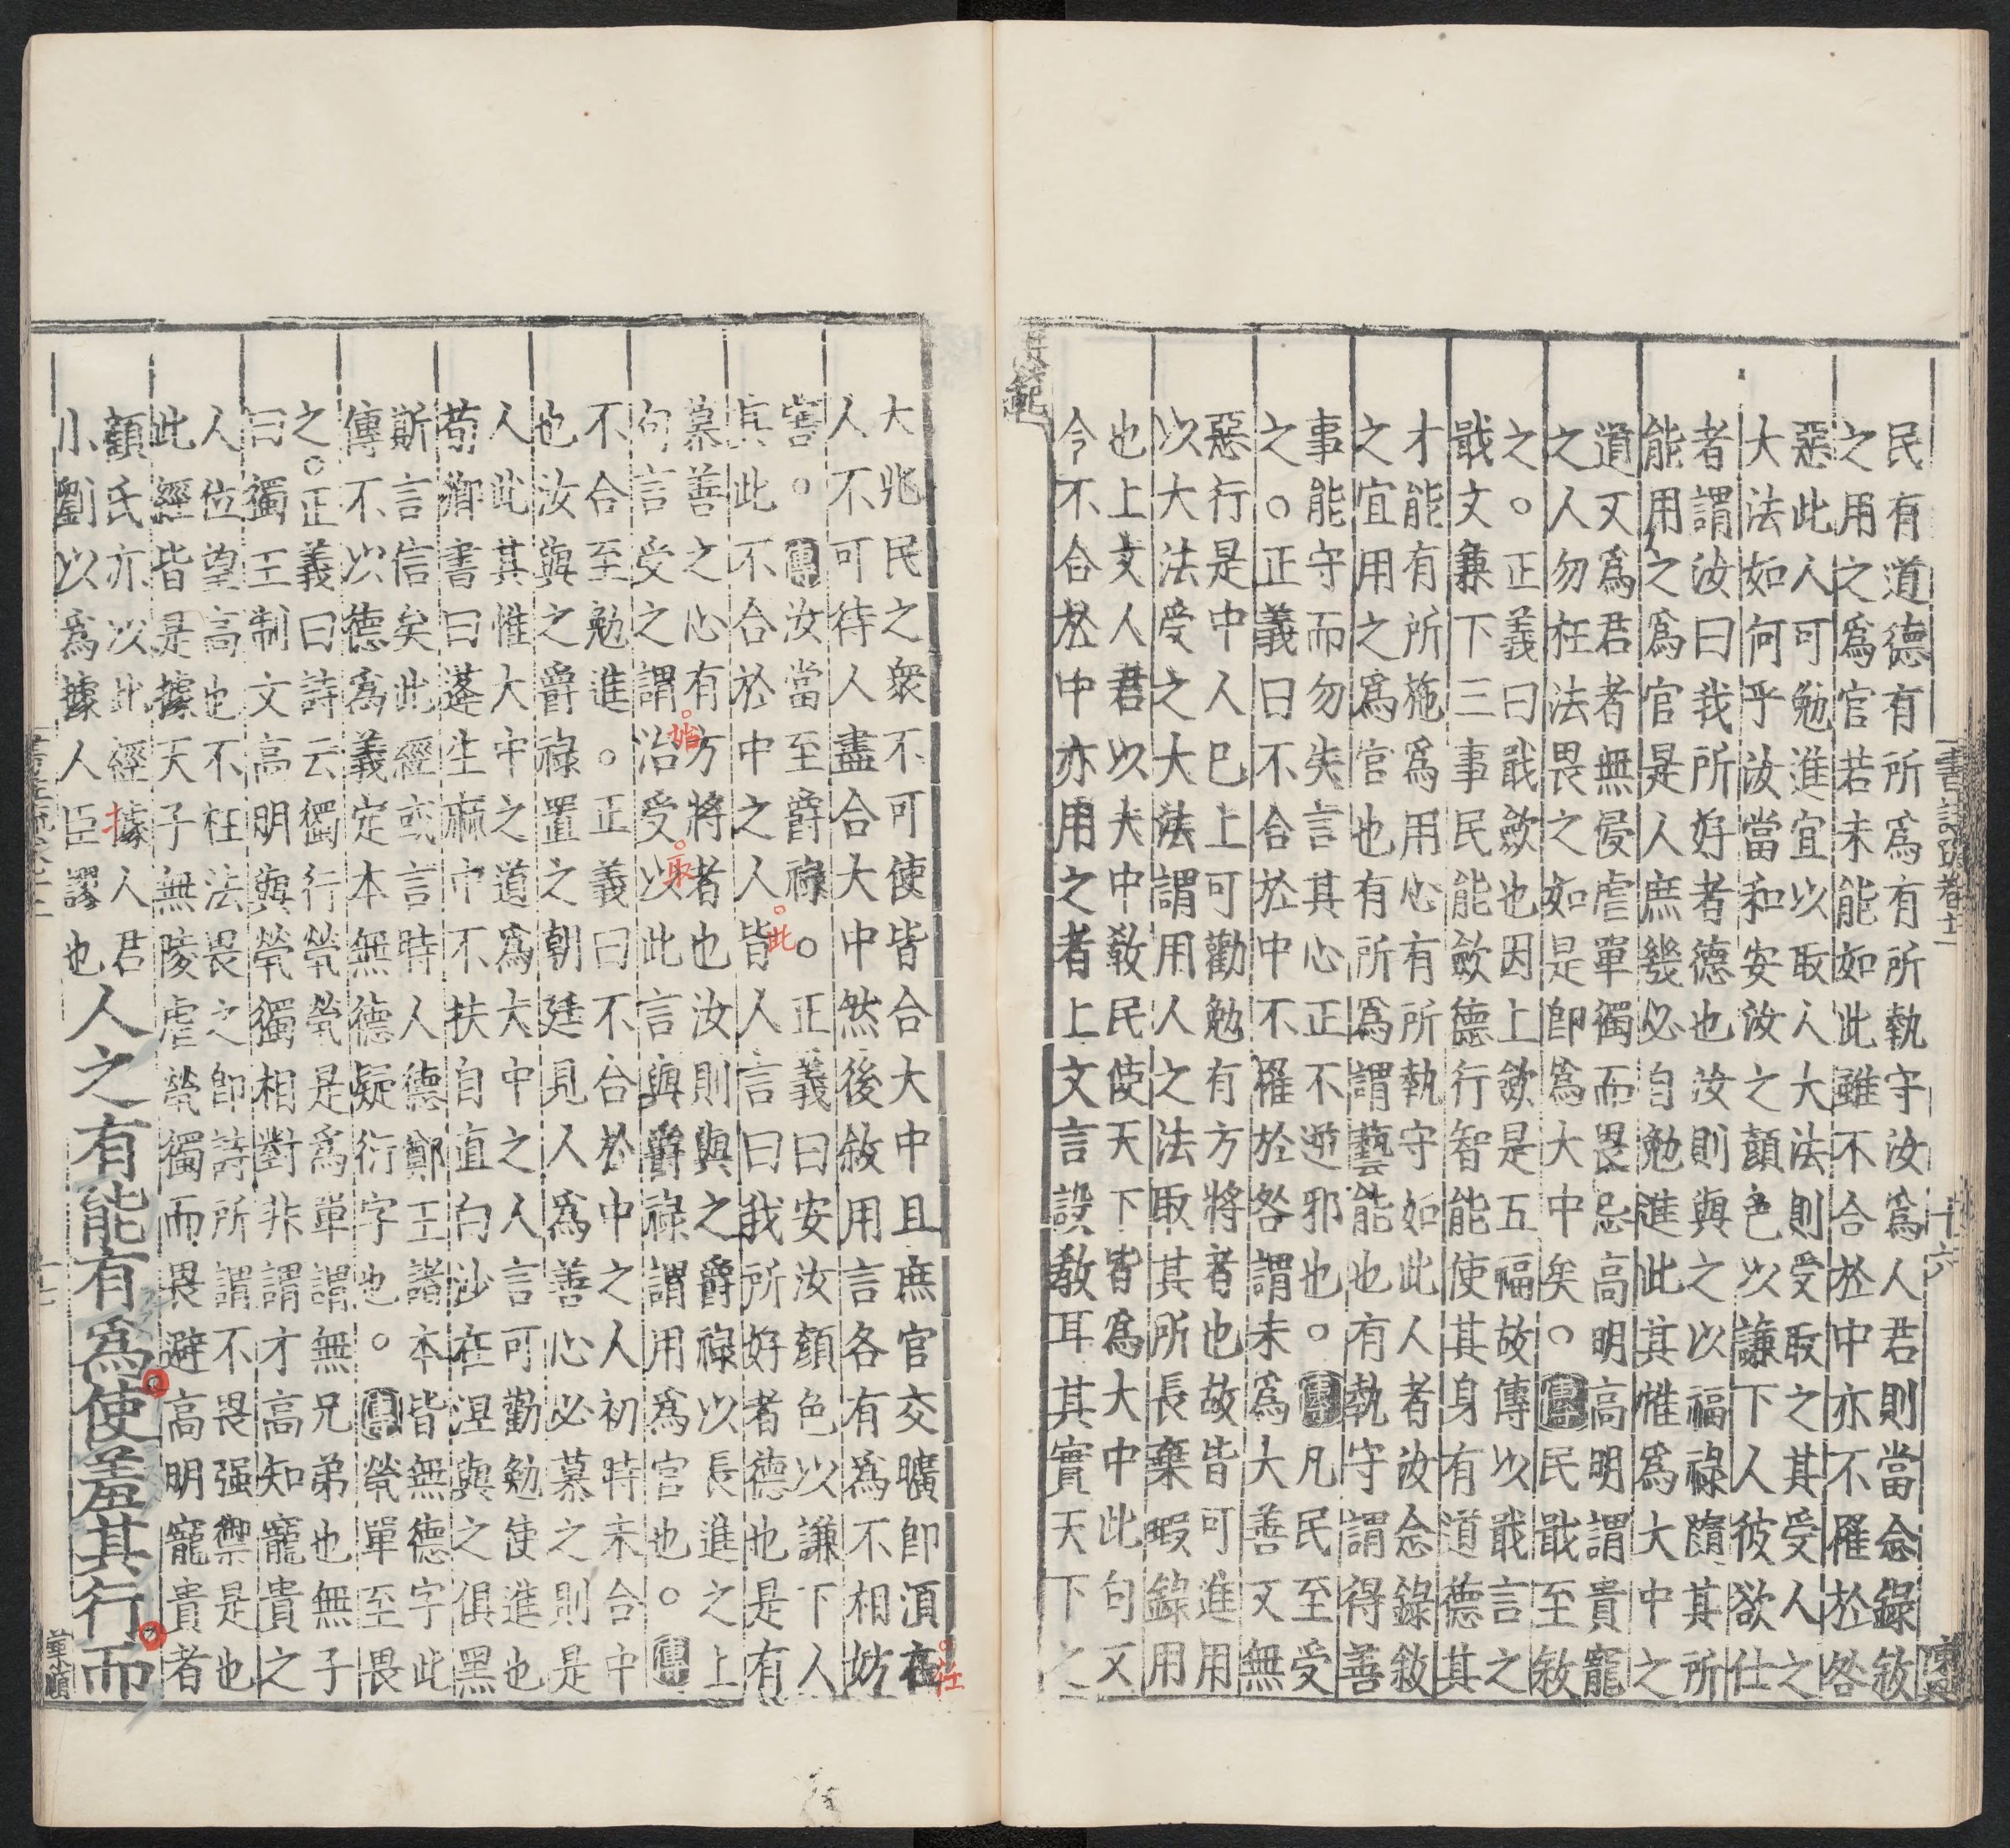 書註疏卷十一
十六
民有道德有所爲有所執守汝爲人君則當念錄敘
之用之爲官若未能如此雖不合於中亦不罹於咎
惡此人可勉進宜以取人大法則受取之其受人之
大法如何乎汝當和安汝之顏色以謙下人彼欲仕
者謂汝曰我所好者德也汝則與之以福祿隨其所
能用之爲官是人庶幾必自勉進此其惟爲大中之
道又爲君者無侵虐單獨而畏忌高明高明謂貴寵
之人勿枉法畏之如是卽爲大中矣。傳民戢至敘
之。正義曰戢斂也因上斂是五福故傳以戢言之
戢文兼下三事民能斂德行智能使其身有道德其
才能有所施爲用心有所執守如此人者汝念錄敘
之宜用之爲官也有所爲謂藝能也有執守謂得善
事能守而勿失言其心正不逆邪也。傳凡民至受
之。正義曰不合於中不罹於咎謂未爲大善又無
惡行是中人已上可勸勉有方將者也故皆可進用
以大法受之大法謂用人之法取其所長棄瑕錄用
也上文人君以大中敎民使天下皆爲大中此句又
今不合於中亦用之者上文言設敎耳其實天下之
洪範
大兆民之衆不可使皆合大中且庶官交曠卽須在
仕
人不可待人盡合大中然後敘用言各有爲不相妨
害。傳汝當至爵祿。正義曰安汝顏色以謙下人
此
其此不合於中之人皆人言曰我所好者德也是有
慕善之心有方將者也汝則與之爵祿以長進之上
始
取
句言受之謂治受以此言與爵祿謂用爲官也。傳
不合至勉進。正義曰不合於中之人初時未合中
也汝與之爵祿置之朝廷見人爲善心必慕之則是
人此其惟大中之道爲大中之人言可勸勉使進也
荀卿書曰蓬生麻中不扶自直白沙在涅與之俱黑
斯言信矣此經或言時人德鄭王諸本皆無德字此
傳不以德爲義定本無德疑衍字也。傳煢單至畏
之。正義曰詩云獨行煢煢是爲單謂無兄弟也無子
曰獨王制文高明與煢獨相對非謂才高知寵貴之
人位望高也不枉法畏之卽詩所謂不畏强禦是也
此經皆是據天子無陵虐煢獨而畏避高明寵貴者
顧氏亦以此經據人君
小劉以爲據人臣謬也人之有能有爲使羞其行而